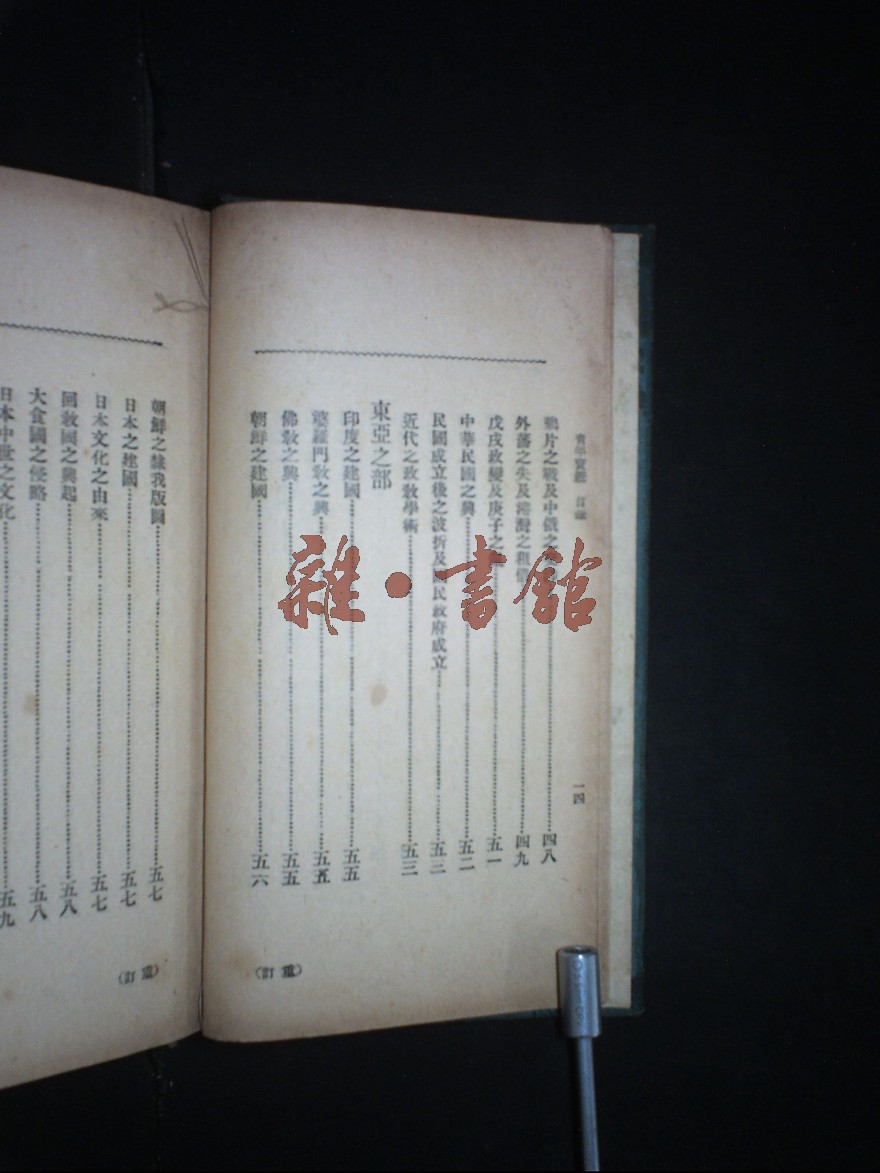 目錄
一四
鴉片之戰及中俄之 四八
外藩之失及港灣之租借 四九
戊戌政變及庚子之 五一
中華民國之興 五二
民國成立後之波折及國民政府成立 五三
近代之政敎學術 五三
東亞之部
印度之建國 五五
婆羅門敎之興 五五
佛敎之興 五五
朝鮮之建國 五六
(重訂)
朝鮮之隸我版圖 五七
日本之建國 五七
日本文化之由來 五七
回敎國之興起 五八
大食國之侵略 五八
日本中世之文化 五九
(重訂)
雜·書館